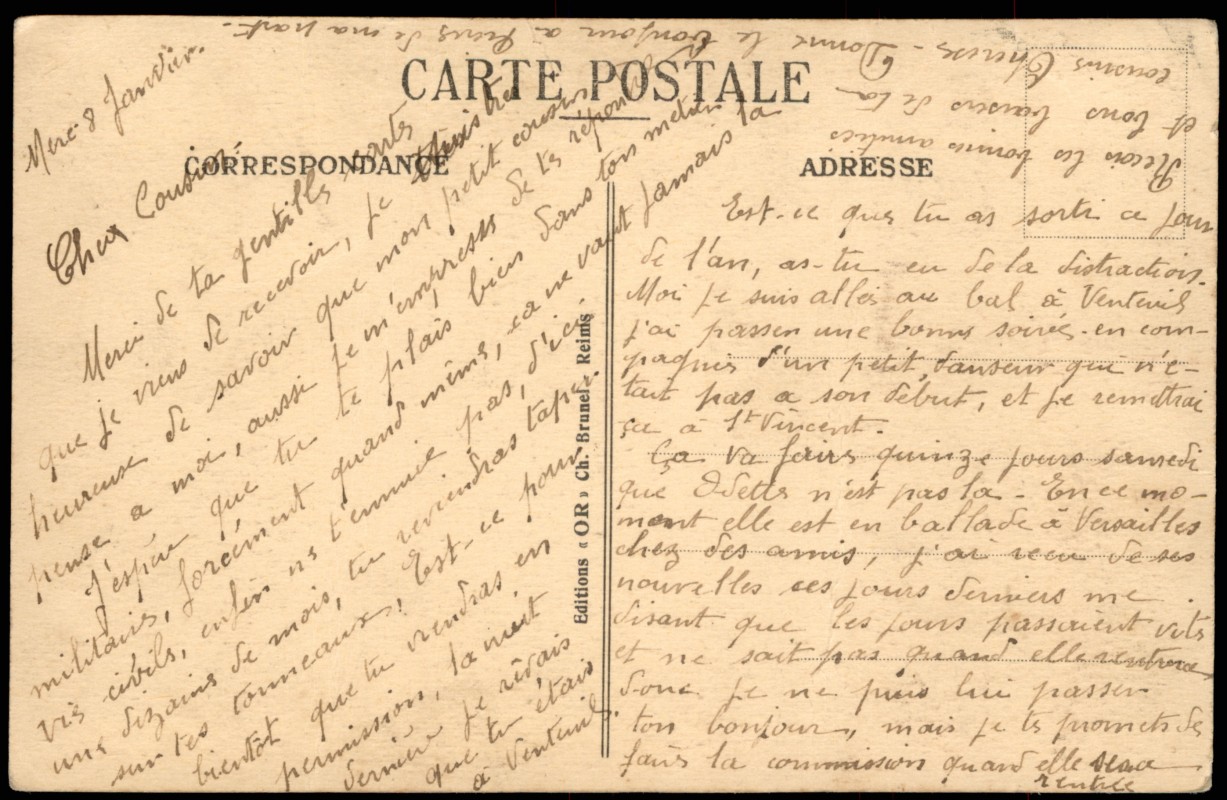 CARTE POSTALE
CORRESPONDANCE
ADRESSE
Merc 8 Janvier.
Cher Cousin:
Merci de ta gentille carte
que je viens de recevoir, je suis très
heureuse de savoir que mon petit cousin
pense a moi, aussi je m'empresse de te répondre
J'espère que tu te plais bien dans ton métier
militaire, forcément quand même, ça ne vaut jamais la
vie civils, enfin ne t'ennuie pas, d'ici
une dizaine de mois, tu reviendras taper
sur tes tonneaux! Est-ce pour
bientôt que tu viendras, en
permission, la nuit
dernière je rêvais
que tu étais
à Venteuil.
Editions « OR » Ch. Brunel, Reims
Est-ce que tu as sorti ce jour
de l'an, as-tu eu de la distraction.
Moi je suis allée au bal à Venteuil
j'ai passer une bonne soirée en com-
pagnie d'un petit danseur qui n'é-
tait pas a son début, et je remettrai
ça à St Vincent.
Ça va faire quinze jours samedi
que Odette n'est pas la - En ce mo-
ment elle est en ballade à Versailles
chez des amis, j'ai recu de ses
nouvelles ces jours derniers me
disant que les jours passaient vite
et ne sait pas quand elle rentrera
donc je ne puis lui passer
ton bonjour, mais je te promets de
faire la commission quand elle sera
rentrée
Recois les bonnes amitiés
et bons baisers de ta
cousine Thérèse - Donne le bonjour à
de ma part.